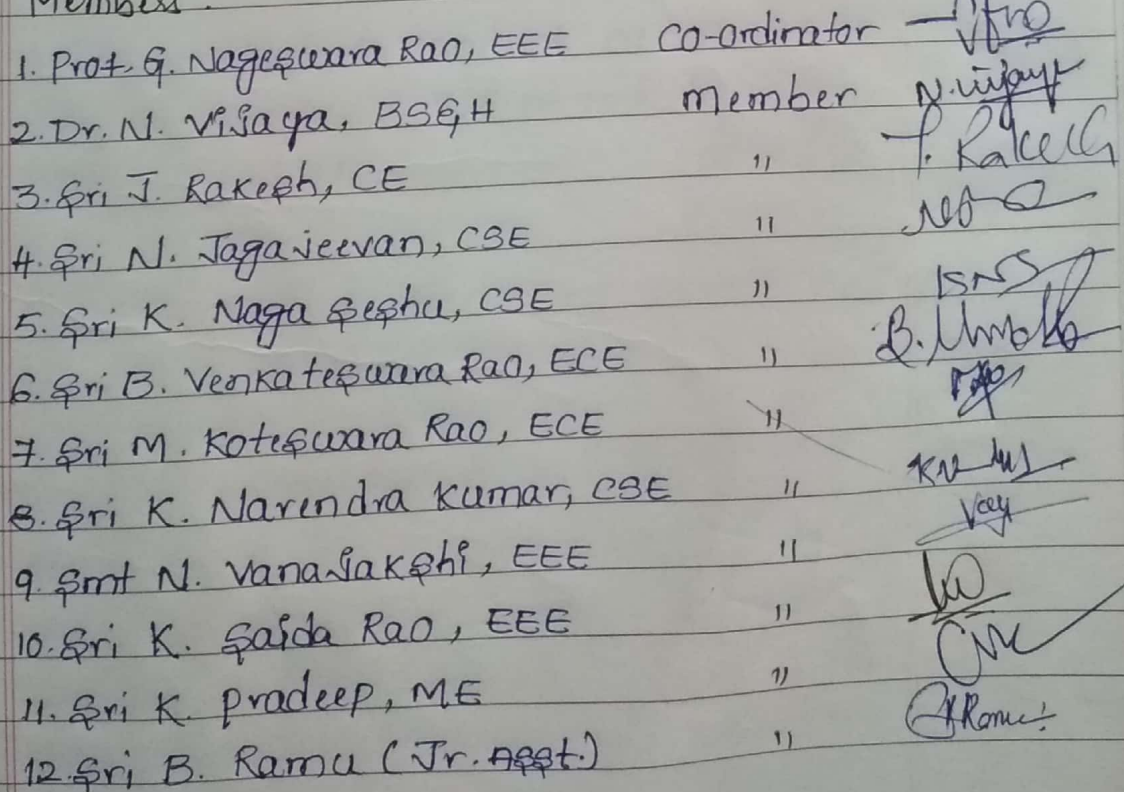 Members
1. Prof. G. Nageswara Rao, EEE Co-ordinator
2. Dr. N. Vijaya, BS&H member N. Vijaya
3. Sri J. Rakesh, CE " J. Rakesh
4. Sri N. Jagajeevan, CSE "
5. Sri K. Naga Seshu, CSE " KSNS
6. Sri B. Venkateswara Rao, ECE "
7. Sri M. Koteswara Rao, ECE "
8. Sri K. Narendra Kumar, CSE "
9. Smt N. Vanajakshi, EEE "
10. Sri K. Saida Rao, EEE "
11. Sri K. Pradeep, ME "
12. Sri B. Ramu (Jr. Asst.) " Ramu